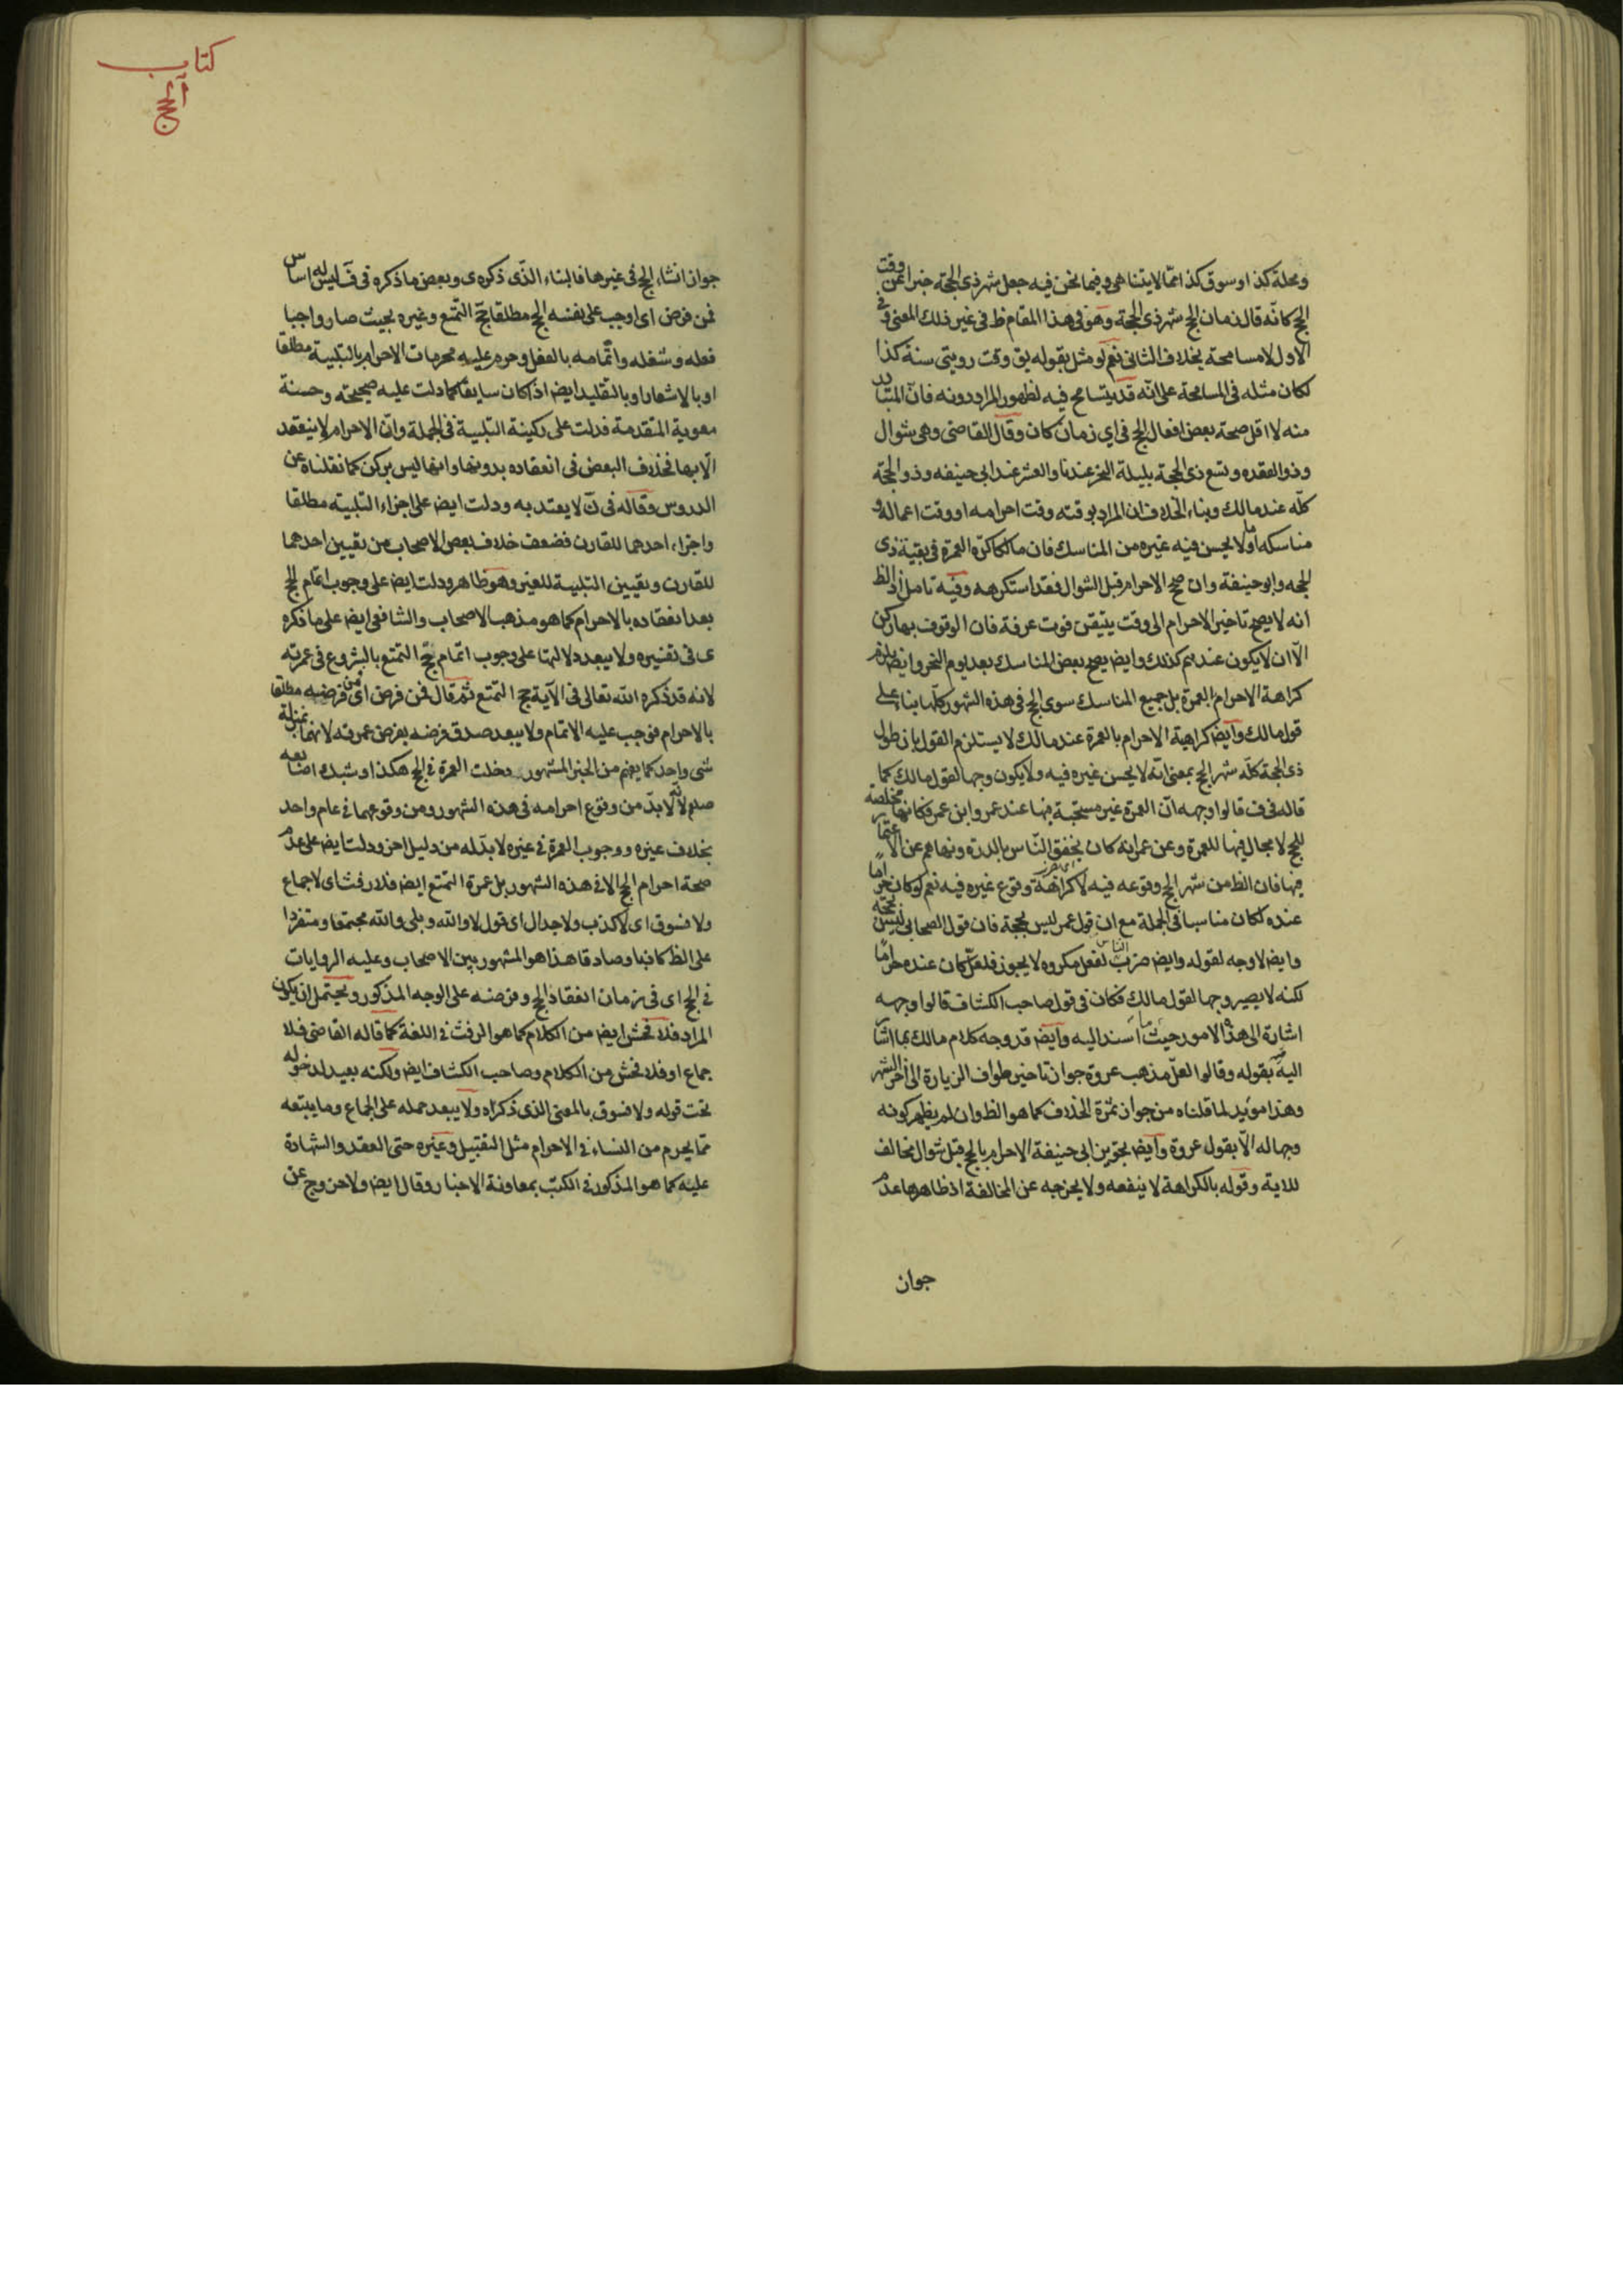 ومحلة كذا وسوق كذا عما لا يتناهى وفيما نحن فيه جعل شهر ذي الحجة خبرا عن وقت
الحج كانه قال زمان الحج شهر ذي الحجة وهو في هذا المقام ظ في غير ذلك المعنى ففي
الاول لا مسامحة بخلاف الثاني نعم لو مثل بقوله يق وقت رويتي سنة كذا
لكان مثله في المسامحة على انه قد يتسامح فيه لظهور المراد دونه فان المتبادر
منه لا اقل صحة بعض افعال الحج في اي زمان كان وقال القاضي وهي شوال
وذو القعده وتسع ذي الحجة بليلة النحر عندنا والعشر عند ابي حنيفه وذو الحجة
كله عند مالك وبناء الخلاف ان المراد بوقته وقت احرامه او وقت اعماله و
مناسكه او ما لا يحسن فيه غيره من المناسك فان مالكا كره العمرة في بقية ذي
الحجه وابو حنيفة وان صح الاحرام قبل الشوال فقد استكرهه وفيه تامل اذ الظ
انه لا يصح تاخير الاحرام الى وقت يتيقن فوت عرفة فان الوقوف بها ركن
الا ان لا يكون عندهم كذلك وايض يصح بعض المناسك بعد يوم النحر وايض يلزم
كراهة الاحرام بالعمرة بل جميع المناسك سوى الحج في هذه الشهور كلها بناء على
قول مالك وايض كراهية الاحرام بالعمرة عند مالك لا يستلزم القول بان طول
ذي الحجة كله شهر الحج بمعنى انه لا يحسن غيره فيه ولا يكون وجها لقول مالك كما
قاله في ف قالوا وجهه ان العمرة غير مستحبة فيها عند عمر وابن عمر فكانها مخلصة
للحج لا مجال فيها للعمرة وعن عمر انه كان يخفق الناس بالدرة وينهاهم عن الاعتمار
فيها فان الظ من شهر الحج وقوعه فيه لا كراهة وقوع غيره فيه نعم لو كان حراما
عنده لكان مناسبا في الجملة مع ان قول عمر ليس بحجة فان قول الصحابي ليس بحجة
وايض لا وجه لقوله وايض ضرب الناس لفعل مكروه لا يجوز فلعل كان عنده حراما
لكنه لا يصير وجها لقول مالك فكان في قول صاحب الكشاف قالوا وجهه
اشارة الى هذه الامور حيث ما اسند اليه وايض قد وجه كلام مالك بما اشار
اليه بقوله وقالوا لعل مذهب عروة جواز تاخير طواف الزيارة الى اخر الشهر
وهذا مويد لما قلناه من جواز ثمرة الخلاف كما هو الظ وان لم يظهر كونه
وجها له الا بقول عروة وايض تجويز ابي حنيفة الاحرام بالحج قبل شوال مخالف
للاية وقوله بالكراهة لا ينفعه ولا يخرجه عن المخالفة اذ ظاهرها عدم
جواز
كتاب
الحج
جواز انشاء الحج في غيرها فالبناء الذي ذكره ي وبعض ما ذكره في ف ليس له اساس
فمن فرض اي اوجب على نفسه الحج مطلقا حج التمتع وغيره بحيث صار واجبا
فعله وشغله واتمامه بالفعل وحرم عليه محرمات الاحرام بالتلبية مطلقا
او بالاشعار او بالتقليد ايض اذا كان سايقا كما دلت عليه صحيحة وحسنة
معوية المتقدمة فدلت على ركنية التلبية في الجملة وان الاحرام لا ينعقد
الا بها فخلاف البعض في انعقاده بدونها وانها ليس بركن كما نقلناه عن
الدروس وقاله في ن لا يعتد به ودلت ايض على اجزاء التلبية مطلقا
واجزاء احدهما للقارن فضعف خلاف بعض الاصحاب من تعيين احدهما
للقارن وتعيين التلبية للغير وهو ظاهر ودلت ايض على وجوب اتمام الحج
بعد انعقاده بالاحرام كما هو مذهب الاصحاب والشافعي ايض على ما ذكره
ي في تفسيره ولا يبعد دلالتها على وجوب اتمام حج التمتع بالشروع في عمرته
لانه قد ذكره الله تعالى في الآية حج التمتع ثم قال فمن فرض اي من فرضه مطلقا
بالاحرام فوجب عليه الاتمام ولا يبعد صدق فرضه بفرض عمرته لانهما بمنزلة
شي واحد كما يفهم من الخبر المشهور دخلت العمرة في الحج هكذا وشبك اصابعه
صلم لانه لا بد من وقوع احرامه في هذه الشهور ومن وقوعهما في عام واحد
بخلاف غيره ووجوب العمرة في غيره لا بد له من دليل اخر ودلت ايض على عدم
صحة احرام الحج الا في هذه الشهور بل عمرة التمتع ايض فلا رفث اي لا جماع
ولا فسوق اي لا كذب ولا جدال اي قول لا والله وبلى والله مجتمعا ومتفردا
على الظ كاذبا وصادقا هذا هو المشهور بين الاصحاب وعليه الروايات
في الحج اي في زمان انعقاد الحج وفرضه على الوجه المذكور ويحتمل ان يكون
المراد فلا فحش ايض من الكلام كما هو الرفث في اللغة كما قاله القاضي فلا
جماع او فلا فحش من الكلام وصاحب الكشاف ايض ولكنه بعيد لدخوله
تحت قوله ولا فسوق بالمعنى الذي ذكراه ولا يبعد حمله على الجماع وما يتبعه
مما يحرم من النساء في الاحرام مثل التقبيل وغيره حتى العقد والشهادة
عليه كما هو المذكور في الكتب بمعاونة الاخبار وقال ايض ولا خروج عن